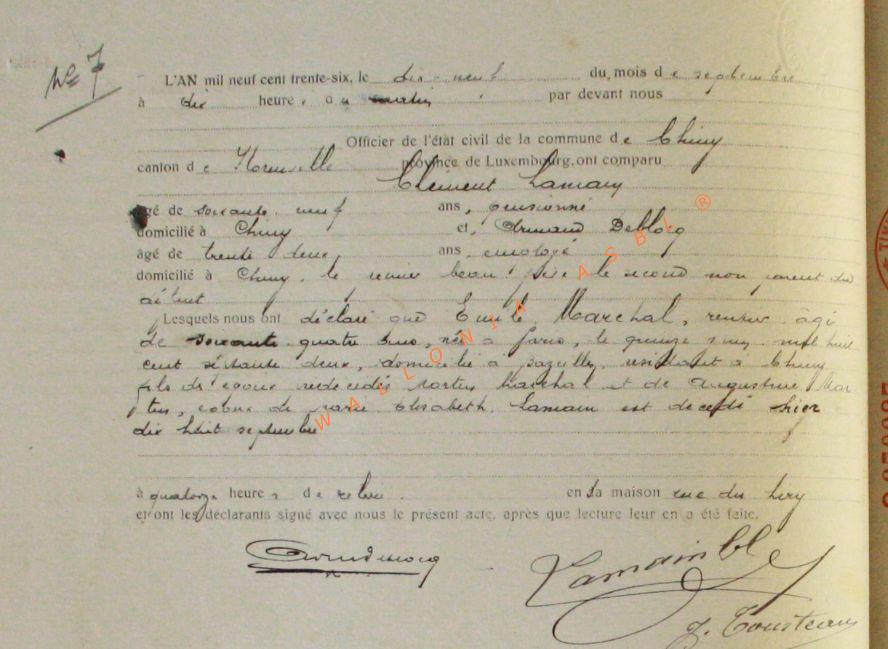 N° 7
L'AN mil neuf cent trente-six, le dix-neuf du mois de septembre
à dix heures au matin par devant nous
Officier de l'état civil de la commune de Chiny
canton de Florenville province de Luxembourg, ont comparu
Clément Lamain
âgé de soixante neuf ans, pensionné
domicilié à Chiny et, Armand Deblocq
âgé de trente deux ans, employé
domicilié à Chiny, le premier beau frère le second non parent du
défunt
Lesquels nous ont déclaré que Emile Marchal, rentier, âgé
de soixante quatre ans, né à le quinze mil huit
cent septante deux, domicilié à résidant à Chiny
fils des époux décédés Marchal et de Augustine Mar-
époux de Marie Elisabeth Lamain est décédé hier
dix huit septembre
à quatorze heures de relevé en sa maison rue du
et ont les déclarants signé avec nous le présent acte, après que lecture leur en a été faite.
Lamain Cl
WALLONIA ASBL ®